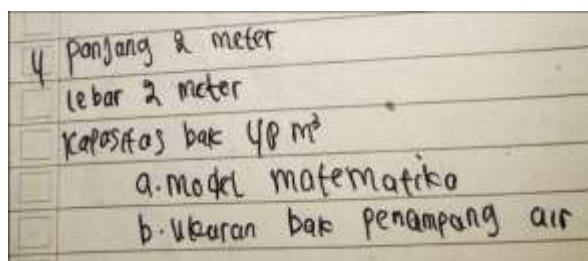 4 panjang 2 meter
lebar 2 meter
Kapasitas bak 48 m³
a. model matematika
b. Ukuran bak penampang air